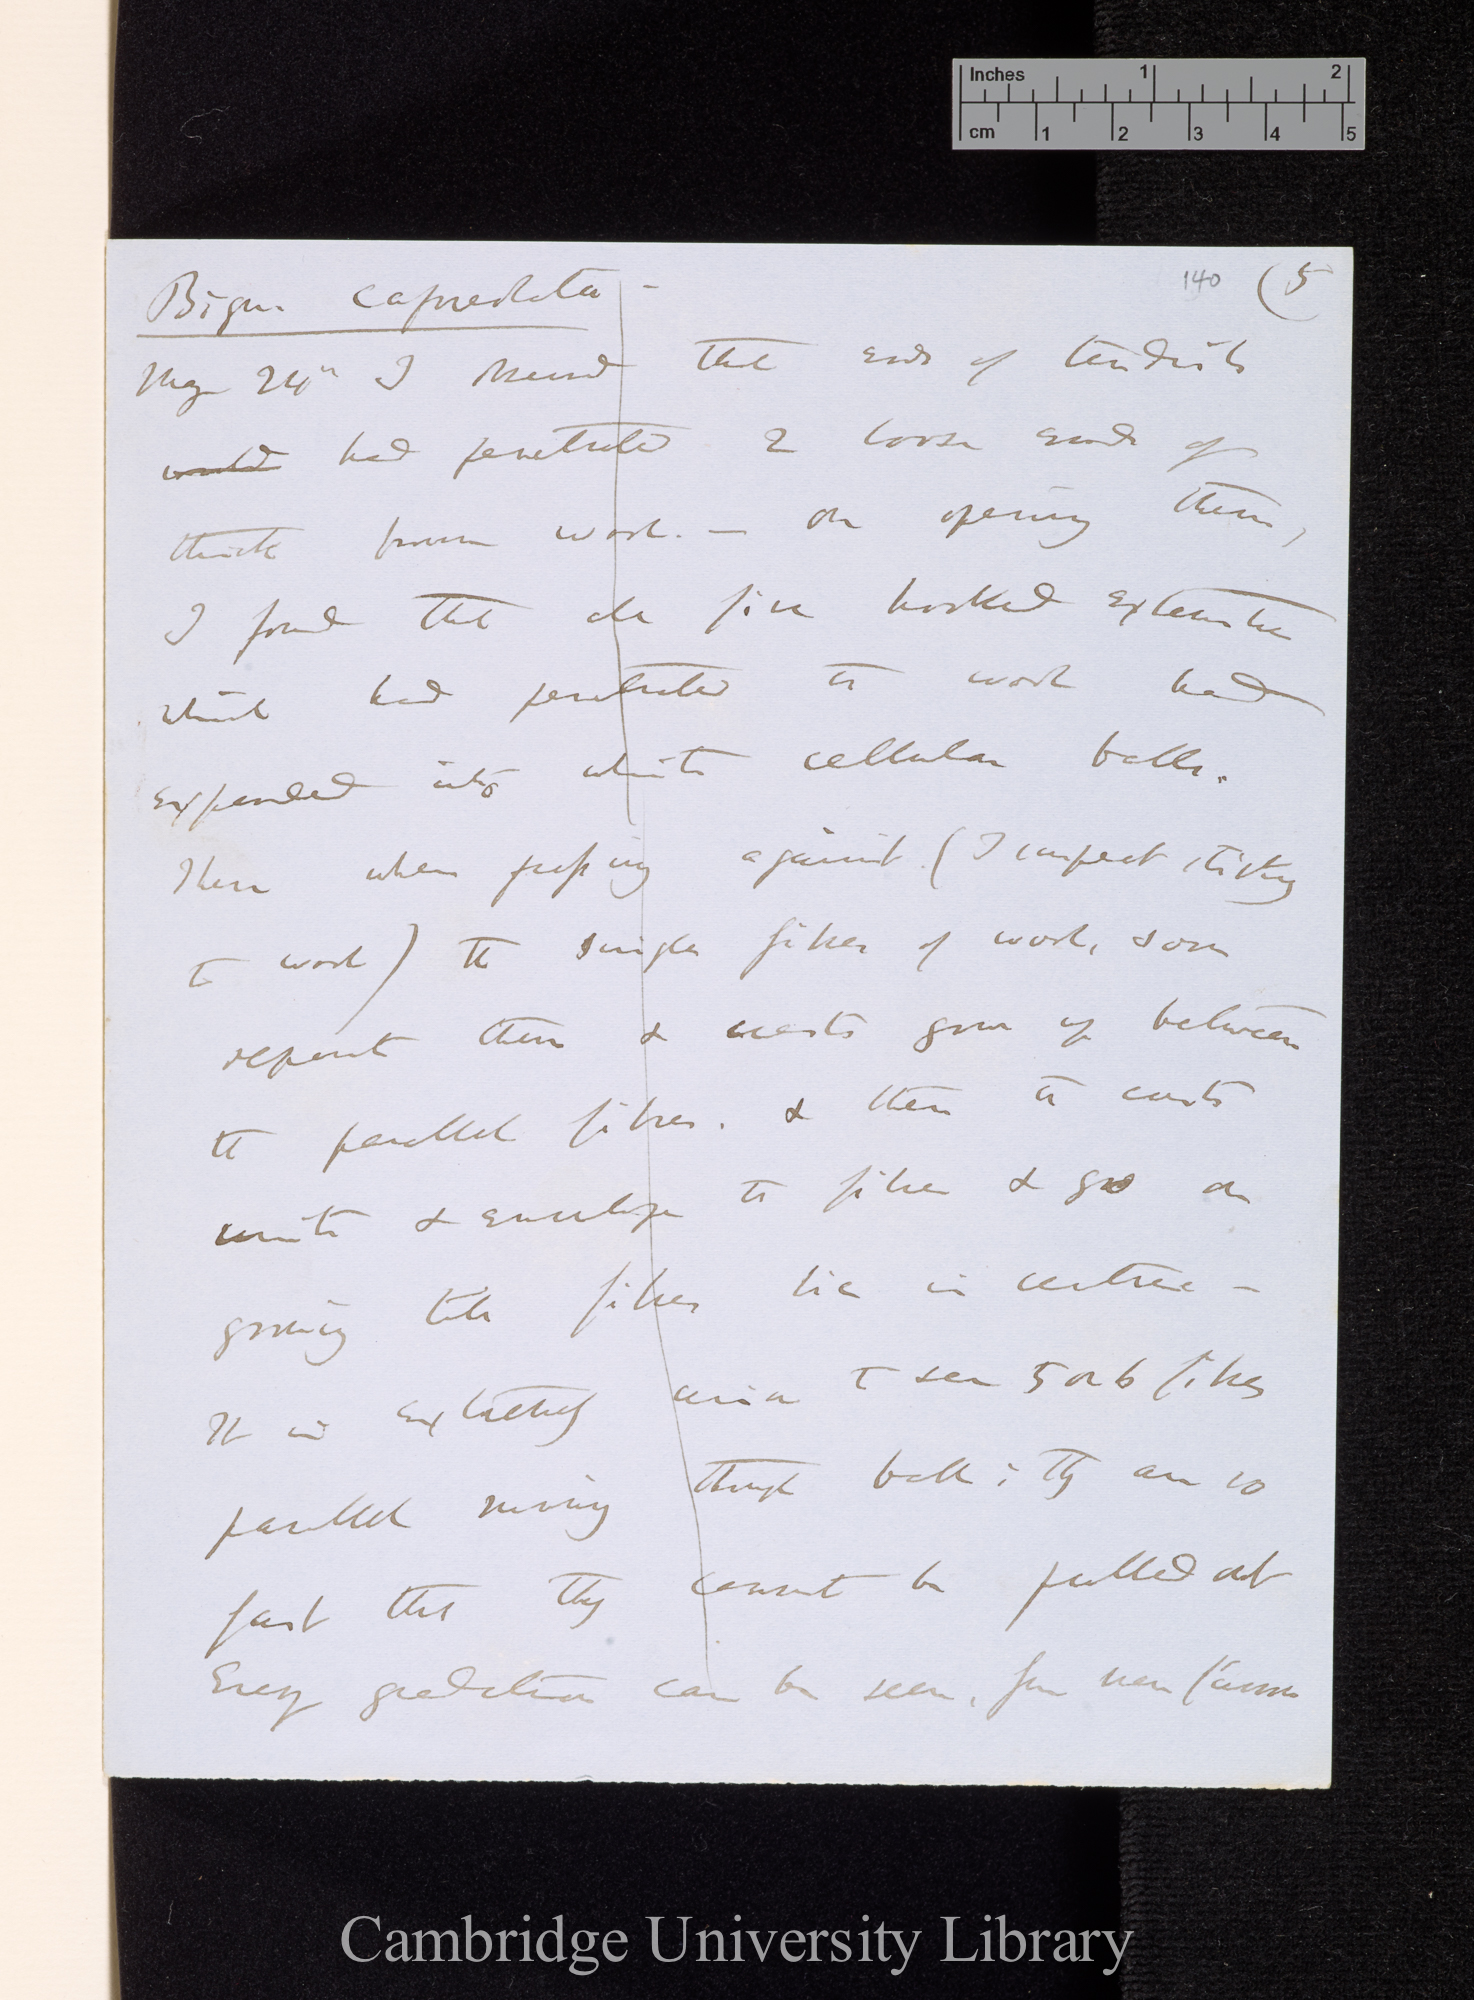 Inches 1 2
cm 1 2 3 4 5
140 (5
Bign. capreolata —
May 24th I observed that ends of tendrils
would had penetrated 2 loose ends of
thick brown wool. — On opening them,
I found that the fine hooked extremities
which had penetrated the wool had
expanded into white cellular balls.
These when pressing against (I suspect sticking
to wool) the single fibres of wool, soon
& crests grow up between
the parallel fibres. & then the crests
unite & envelope the fibres & go on
growing till fibres lie in centre —
It is extremely nice to see 5 or 6 fibres
parallel running through ball; they are so
fast that they cannot be pulled out
Every gradation can be seen, from mere
Cambridge University Library